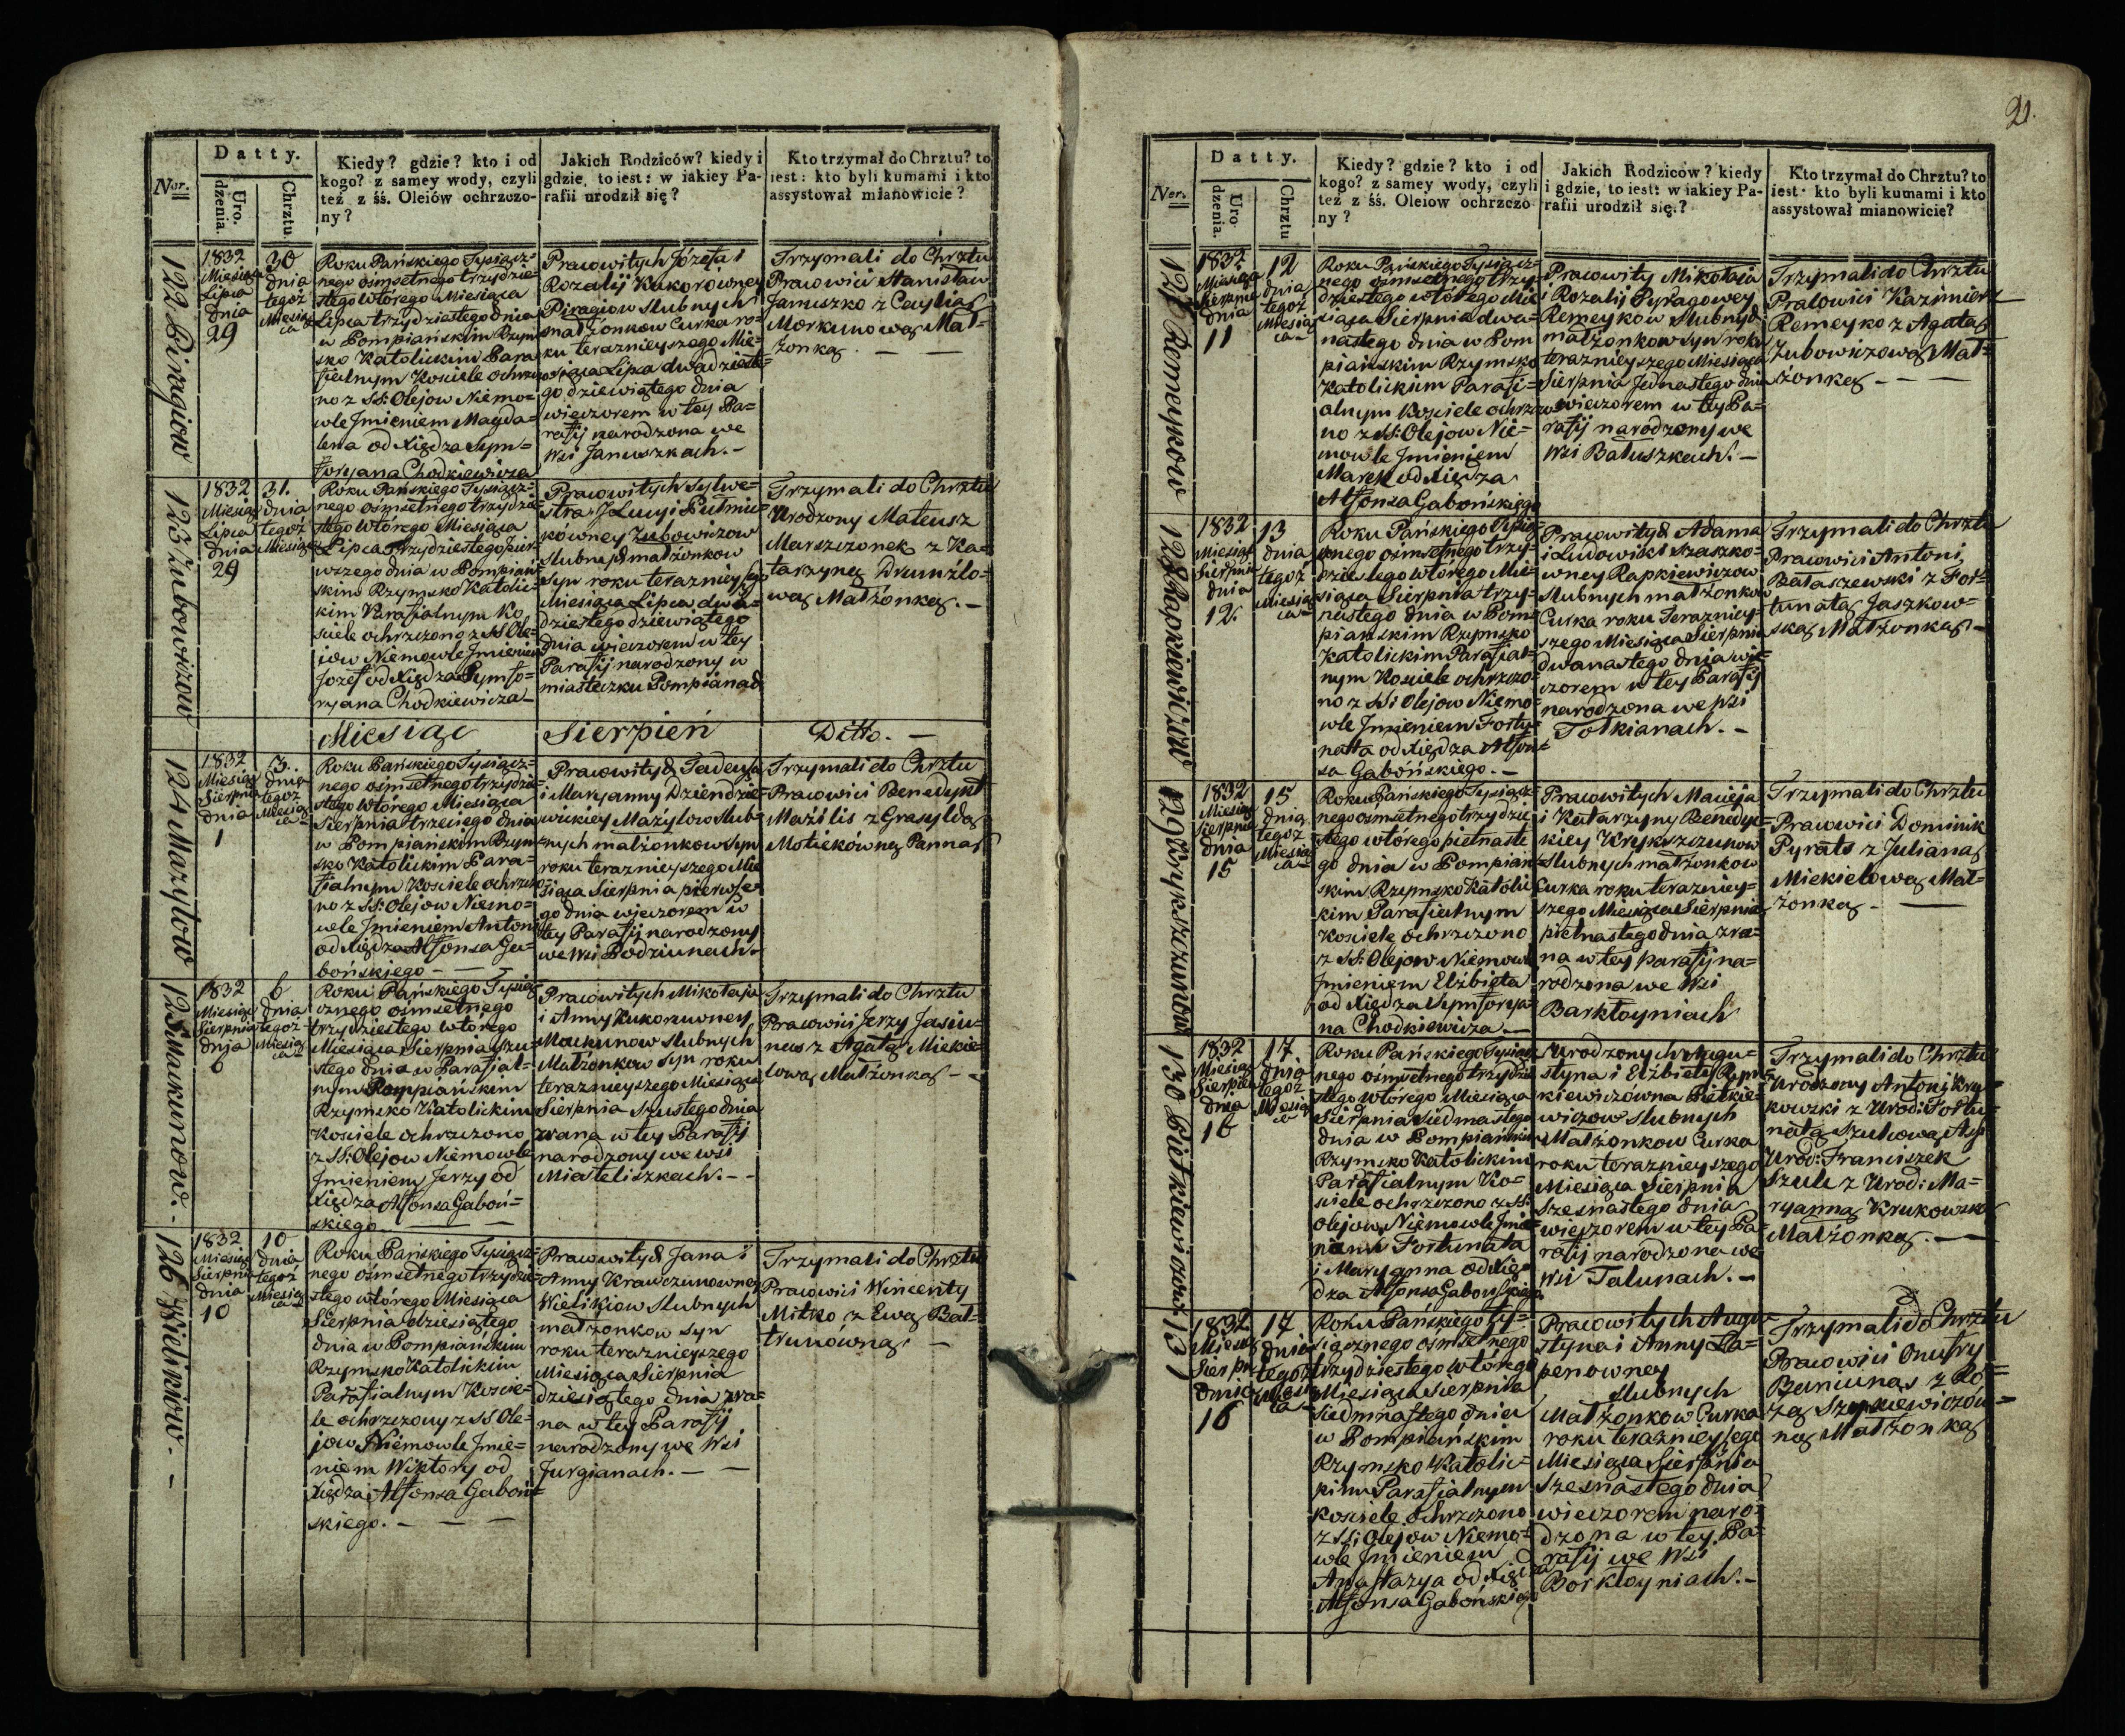 21.
Ner.
Datty.
Uro-
dzenia.
Chrztu.
Kiedy? gdzie? kto i od
kogo? z samey wody, czyli
też z śś. Oleiów ochrzczo-
ny?
Jakich Rodziców? kiedy i
gdzie, to iest: w iakiey Pa-
rafii urodził się?
Kto trzymał do Chrztu? to
iest: kto byli kumami i kto
assystował mianowicie?
122 Piragiow
1832
Miesiąca
Lipca
dnia
29
30
dnia
tegoż
Miesią
ca
Roku Pańskiego Tysiącz=
nego ośmsetnego trzydzie=
stego wtórego Miesiąca
Lipca trzydziestego dnia
w Pompiańskim Rzym
sko Katolickim Para
fialnym Kosciele ochrzczo
no z SS: Olejow Niemo=
wle Imieniem Magda=
lena od Xiędza Sym=
foryana Chodkiewicza
Pracowitych Józefa i
Rozalij Kukorówney
Piragiow slubnych
małżonkow Curka ro=
ku teraznieyszego Mie=
siąca Lipca dwudzieste=
go dziewiątego dnia
wieczorem w tey Pa=
rafij narodzona we
Wsi Januszkach.-
Trzymali do Chrztu
Pracowici Stanisław
Januszko z Cecylią
Morkunową Mał=
żonką. — —
123 Zubowiczow
1832
Miesiąca
Lipca
dnia
29
31.
dnia
tegoż
Miesiąca
Roku Pańskiego Tysiącz=
nego ośmsetnego trzydzie
stego wtórego Miesiąca
Lipca trzydziestego pier=
wszego dnia w Pompiań=
skim Rzymsko Katolic=
kim Parafialnym Ko
sciele ochrzczono z SS Ole=
jow Niemowle Imieniem
Jozef od Xiędza Symfo=
ryana Chodkiewicza
Pracowitych Sylwe=
stra i Lucyi Butmie
kówney Zubowiczow
slubnych małżonkow
Syn roku teraznieyszego
Miesiąca Lipca dwu=
dziestego dziewiątego
dnia wieczorem w tey
Parafij narodzony w
miasteczku Pompianach
Trzymali do Chrztu
Urodzony Mateusz
Marszczonek z Ka=
tarzyną Drumzlo=
wą Małżonką.-
Miesiąc Sierpień Ditto.-
124 Mazylow
1832
Miesiąca
Sierpnia
dnia
1
3.
dnia
tegoż
Miesią
ca
Roku Pańskiego Tysiącz=
nego ośmsetnego trzydzie
stego wtórego Miesiąca
Sierpnia trzeciego dnia
w Pompiańskim Rzym
sko Katolickim Para=
fialnym Kosciele ochrzczo
no z SS: Olejow Niemo=
wle Imieniem Antoni
od Xiędza Alfonsa Ga=
bońskiego — — —
Pracowitych Tadeusza
i Maryanny Dziendzie=
wickiey Mazylow slub=
nych małżonkow Syn
roku teraznieyszego Mie
siąca Sierpnia pierwsze
go dnia wieczorem w
tey Parafij narodzony
we Wsi Podziunach.
Trzymali do Chrztu
Pracowici Benedykt
Mażilis z Grasyldą
Motiekówną Panną
125 Markunow.-
1832
Miesiąca
Sierpnia
dnia
6
6
dnia
tegoż
Miesią
ca
Roku Pańskiego Tysią
cznego ośmsetnego
trzydziestego wtórego
Miesiąca Sierpnia szu=
stego dnia w Parafial=
nym Pompiańskim
Rzymsko Katolickim
Kosciele ochrzczono
z SS: Olejow Niemowle
Imieniem Jerzy od
Xiędza Alfonsa Gaboń=
skiego — —
Pracowitych Mikołaja
i Anny Kukorowney
Markunow slubnych
Małżonkow Syn roku
teraznieyszego Miesiąca
Sierpnia szustego dnia
zrana w tey Parafij
narodzony we wsi
Miateliszkach.- -
Trzymali do Chrztu
Pracowici Jerzy Jasiu=
nas z Agatą Miekie=
lową Małżonką -
126 Wielikiow.- -
1832
Miesiąca
Sierpnia
dnia
10
10
dnia
tegoż
Miesią
ca
Roku Pańskiego Tysiącz=
nego ośmsetnego trzydzie=
stego wtórego Miesiąca
Sierpnia dziesiątego
dnia w Pompiańskim
Rzymsko Katolickim
Parafialnym Koscie=
le ochrzczony z SS Ole=
jow Niemowle Imie=
niem Wiktory od
Xiędza Alfonsa Gaboń=
skiego.- — —
Pracowitych Jana i
Anny Krawczunowney
Wielikiow slubnych
małżonkow syn
roku teraznieyszego
Miesiąca Sierpnia
dziesiątego dnia zra=
na w tey Parafij
narodzony we Wsi
Jurgianach.- —
Trzymali do Chrztu
Pracowici Wincenty
Mitko z Ewą Bał=
trunowną —
Ner.
Datty.
Uro-
dzenia.
Chrztu
Kiedy? gdzie? kto i od
kogo? z samey wody, czyli
też z śś. Oleiow ochrzczo-
ny?
Jakich Rodziców? kiedy
i gdzie, to iest: w iakiey Pa-
rafii urodził się?
Kto trzymał do Chrztu? to
iest: kto byli kumami i kto
assystował mianowicie?
127 Remeykow
1832
Miesiąca
Sierpnia
dnia
11
12
dnia
tegoż
Miesią
ca
Roku Pańskiego Tysiącz=
nego ośmsetnego trzy=
dziestego wtórego Mie
siąca Sierpnia dwu=
nastego dnia w Pom
piańskim Rzymsko
Katolickim Parafi=
alnym Kosciele ochrzczo
no z SS: Olejow Nie=
mowle Imieniem
Marek od Xiędza
Alfonsa Gabońskiego
Pracowity Mikołaia
i Rozalij Pyragowey
Remeykow slubnych
małżonkow Syn roku
teraznieyszego Miesiąca
Sierpnia Jednastego dnia
wieczorem w tey Pa=
rafij narodzony we
Wsi Batuszkach.-
Trzymali do Chrztu
Pracowici Kazimierz
Remeyko z Agatą
Zubowiczową Mał=
żonką - —
128 Rapkiewiczow
1832
Miesiąca
Sierpnia
dnia
12.
13
dnia
tegoż
Miesią
ca
Roku Pańskiego Tysią
cznego ośmsetnego trzy=
dziestego wtórego Mie=
siąca Sierpnia trzy=
nastego dnia w Pom=
piańskim Rzymsko
Katolickim Parafial=
nym Kosciele ochrzczo=
no z SS: Olejow Niemo=
wle Imieniem Forty=
nata od Xiędza Alfon=
sa Gabońskiego.-
Pracowitych Adama
i Ludowiki Szaszko=
wney Rapkiewiczow
slubnych małżonkow
Curka roku Terazniey=
szego Miesiąca Sierpnia
dwanastego dnia wie=
czorem w tey Parafij
narodzona we Wsi
Tołkianach.-
Trzymali do Chrztu
Pracowici Antoni
Bałaszewski z For=
tunatą Jaszkow=
ską Małżonką.-
129 Krykszczunow
1832
Miesiąca
Sierpnia
dnia
15
15
dnia
tegoż
Miesią
ca
Roku Pańskiego Tysiącz=
nego ośmsetnego trzydzie
stego wtórego pietnaste
go dnia w Pompiań=
skim Rzymsko Katolic
kim Parafialnym
Kosciele ochrzczono
z SS: Olejow Niemowle
Imieniem Elżbieta
od Xiędza Symforya=
na Chodkiewicza.-
Pracowitych Macieja
i Katarzyny Benedyc=
kiey Krykszczunow
slubnych małżonkow
Curka roku terazniey=
szego Miesiąca Sierpnia
pietnastego dnia zra=
na w tey parafij na=
rodzona we Wsi
Barkłoyniach
Trzymali do Chrztu
Pracowici Dominik
Pyrats z Julianą
Miekielową Mał=
żonką - —
130 Pietkiewiczow
1832
Miesiąca
Sierpnia
dnia
16
17.
dnia
tegoż
Miesią
ca
Roku Pańskiego Tysiącz
nego ośmsetnego trzydzie
stego wtórego Miesiąca
Sierpnia Siedmastego
dnia w Pompiańskim
Rzymsko Katolickim
Parafialnym Ko=
sciele ochrzczono z SS:
Olejow Niemowle Imie=
niem Fortunata
i Maryanna od Xię=
dza Alfonsa Gabońskiego
Urodzonych Augu=
styna i Elżbiety Rym=
kiewiczówna Pietkie=
wiczow slubnych
Małżonkow Curka
roku teraznieyszego
Miesiąca Sierpnia
szesnastego dnia
wieczorem w tey Pa=
rafij narodzona we
Wsi Talunach.-
Trzymali do Chrztu
Urodzony Antoni Kru=
kowski z Urod: Fortu=
natą Szulcową Asy:
Urod: Franciszek
Szulc z Urod: Ma=
ryanną Krukowską
Małżonką. —
131
1832.
Miesiąca
Sierpnia
dnia
16
17
dnia
tegoż
Miesią
ca
Roku Pańskiego ty=
siącznego ośmsetnego
trzydziestego wtórego
Miesiąca Sierpnia
siedmnastego dnia
w Pompiańskim
Rzymsko Katolic=
kim Parafialnym
Kosciele ochrzczono
z SS: Olejow Niemo=
wle Imieniem
Anastazya od Xiędza
Alfonsa Gabońskiego
Pracowitych Augu=
styna i Anny Ła=
penowney
slubnych
Małżonkow Curka
roku teraznieyszego
Miesiąca Sierpnia
szesnastego dnia
wieczorem naro=
dzona w tey Pa=
rafij we Wsi
Borkłoyniach.-
Trzymali do Chrztu
Pracowici Onufry
Buniunas z Ró=
żą Szynkiewiczów=
ną Małżonką